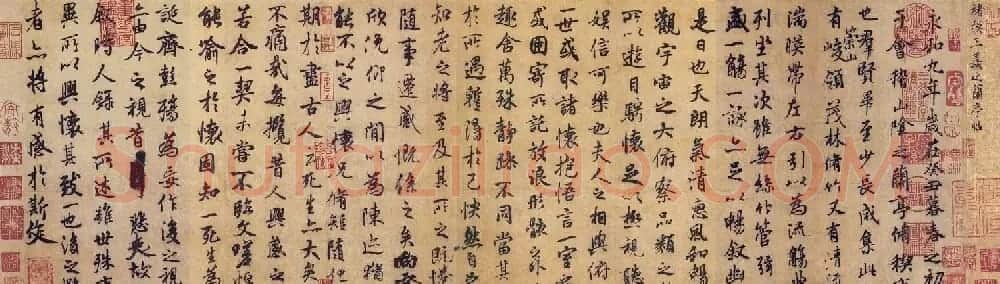 永和九年歲在癸丑暮春之初
于會稽山陰之蘭亭脩稧
也羣賢畢至少長咸集此
有崇山峻領茂林脩竹又有清流
湍暎帶左右引以為流觴曲
列坐其次雖無絲竹管弦
盛一觴一詠亦足以暢敘幽
是日也天朗氣清惠風和暢
觀宇宙之大俯察品類之
所以遊目騁懷足以極視聽
娛信可樂也夫人之相與俯
一世或取諸懷抱悟言一室
或因寄所託放浪形骸之外
趣舍萬殊靜躁不同當其
於所遇蹔得於己怏然自
知老之將至及其所之既惓
隨事遷感慨係之矣向之
欣俛仰之間以為陳迹猶
能不以之興懷况脩短隨化
期於盡古人云死生亦大矣
不痛哉每攬昔人興感之
若合一契未嘗不臨文嗟悼
能喻之於懷固知一死生為
誕齊彭殤為妄作後之視
亦由今之視昔 悲夫故
敘時人錄其所述雖世殊事
異所以興懷其致一也後之
者亦將有感於斯文
Shufaziliao.COM